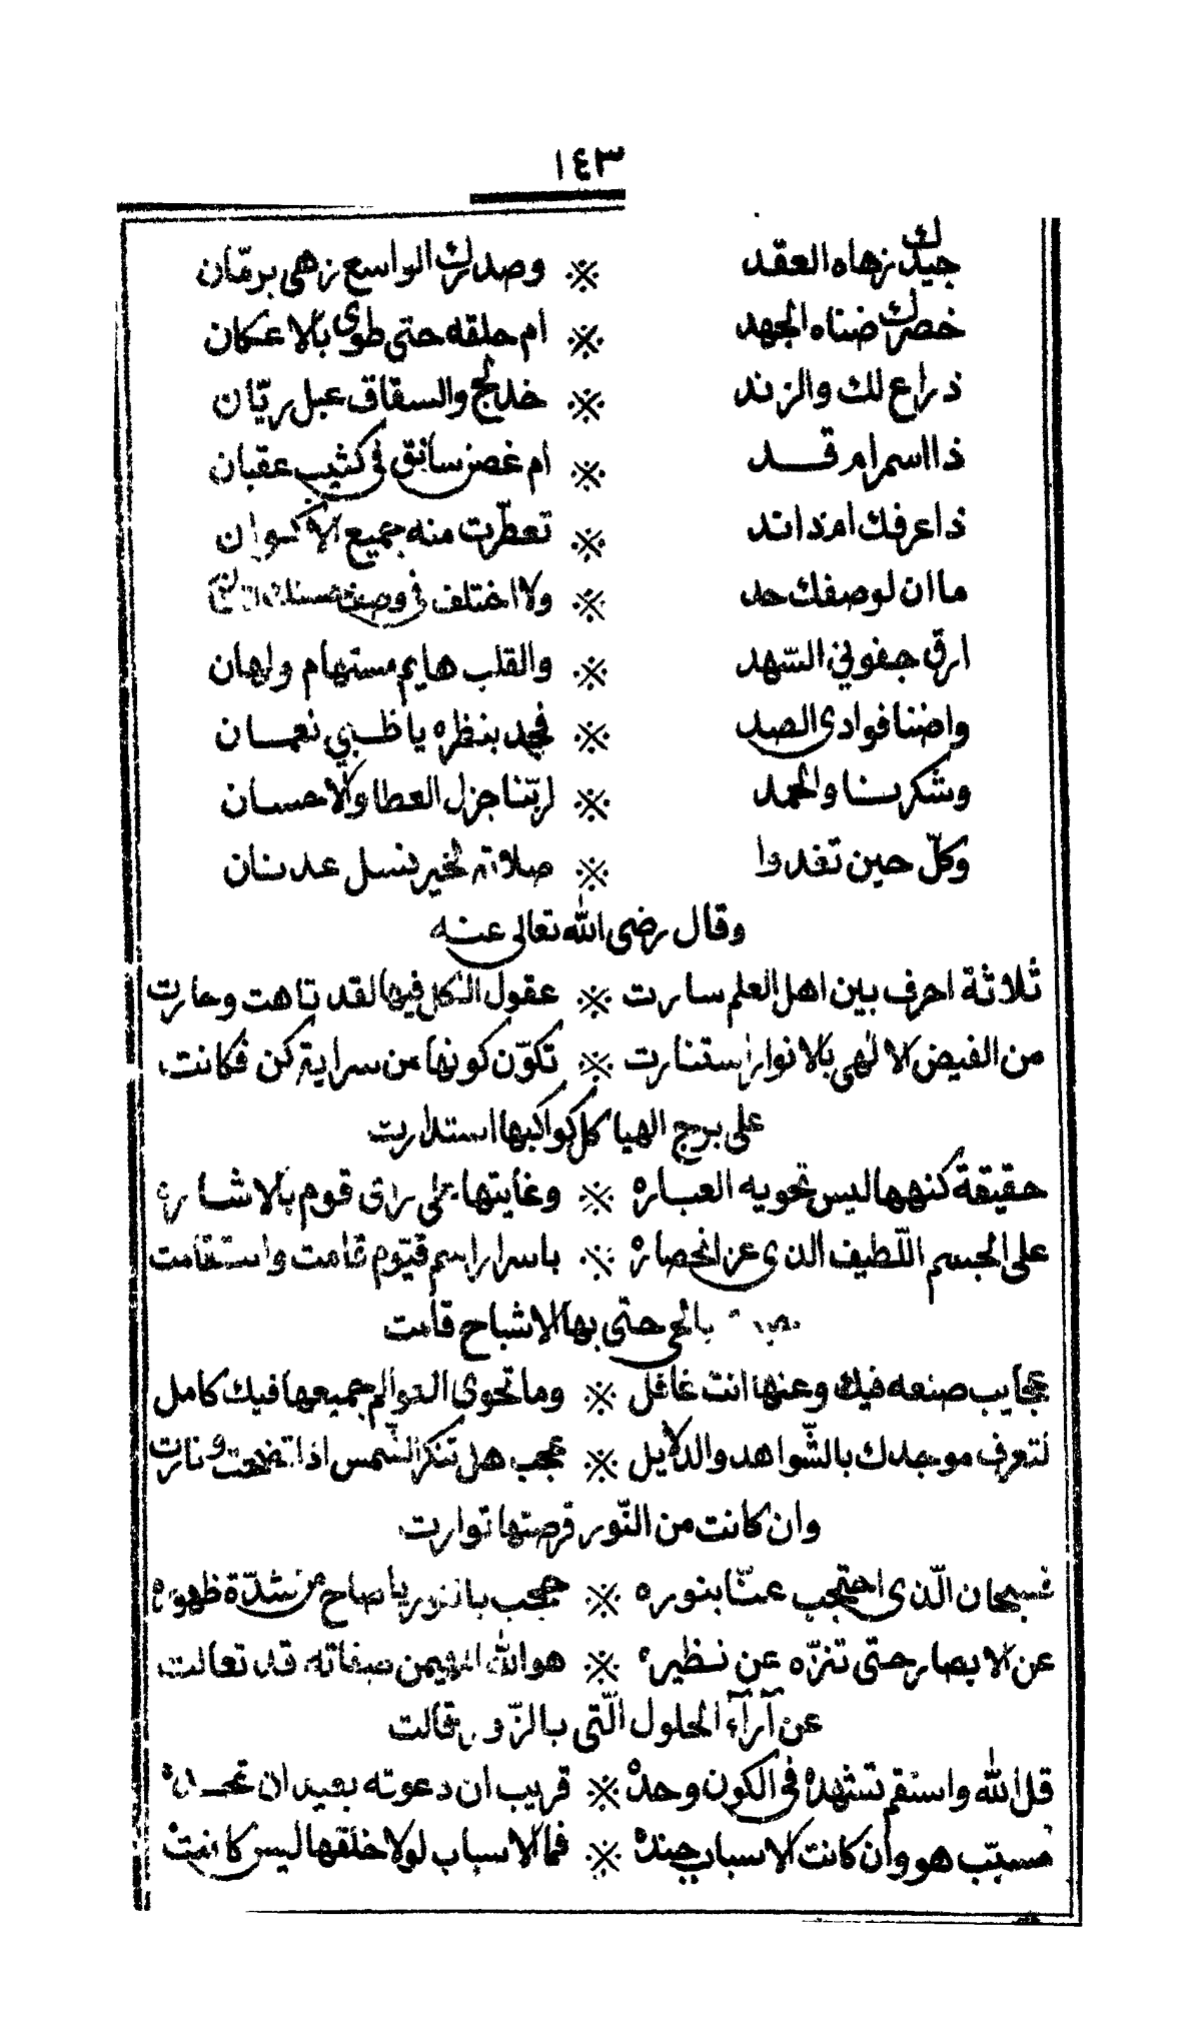 ١٤٣
جيدك زهاه العقد ※ وصدرك الواسع زهى برمّان
خصرك ضناه الجهد ※ ام حلقه حتى طوى بالاعكان
ذراع لك والزند ※ خدلج والسقاق عبل ريّان
ذا اسمر ام قد ※ ام غصن سابق فى كثيب عقبان
ذا عرفك ام ذا ند ※ تعطّرت منه جميع الاكوان
ما ان لوصفك حد ※ ولا اختلف فى وصف حسنك
ارق جفونى السّهد ※ والقلب هايم مستهام ولهان
واضنا فوادى الصد ※ فجد بنظره يا ظبي نعمان
وشكرنا والحمد ※ لربّنا جزل العطا والاحسان
وكلّ حين تغدوا ※ صلاته لخير نسل عدنان
وقال رضى الله تعالى عنه
ثلاثة احرف بين اهل العلم سارت ※ عقول الكل فيها لقد تاهت وحارت
من الفيض الالهى بالانوار استنارت ※ تكوّن كونها من سراية كن فكانت
على برج الهيا كل كواكبها استدارت
حقيقة كنهها ليس تحويه العباره ※ وغايتها على راى قوم بالاشاره
على الجسم اللّطيف الذى عز انحصاره ※ باسرار اسم قيّوم قامت واستقامت
بالحى حتى بها الاشباح قامت
عجايب صنعه فيك وعنها انت غافل ※ وما تحوى العوالم جميعها فيك كامل
لتعرف موجدك بالشّواهد والدلايل ※ عجب هل تنكر الشّمس اذا تضحت ونارت
وان كانت من النّور قرصتها توارت
فسبحان الّذى احتجب عنّا بنوره ※ حجب بالنور يا صاح من شدّة ظهوره
عن الابصار حتى تنزّه عن نظيره ※ هو الله المهيمن صفاته قد تعالت
عن آرآء الحلول الّتى بالزّور قالت
قل الله واستقم تشهده فى الكون وحده ※ قريب ان دعوته بعيد ان تحده
مسبّب هو وان كانت الاسباب جنده ※ فما الاسباب لولا خلقها ليس كانت